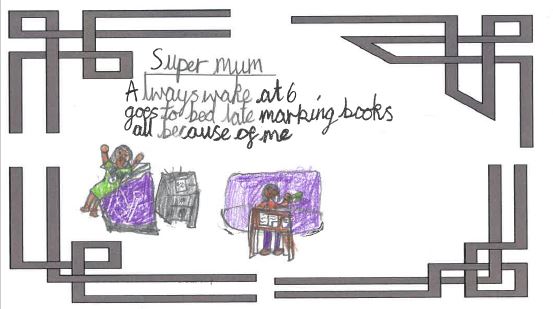 Super mum
Always wake at 6
goes to bed late marking books
all because of me